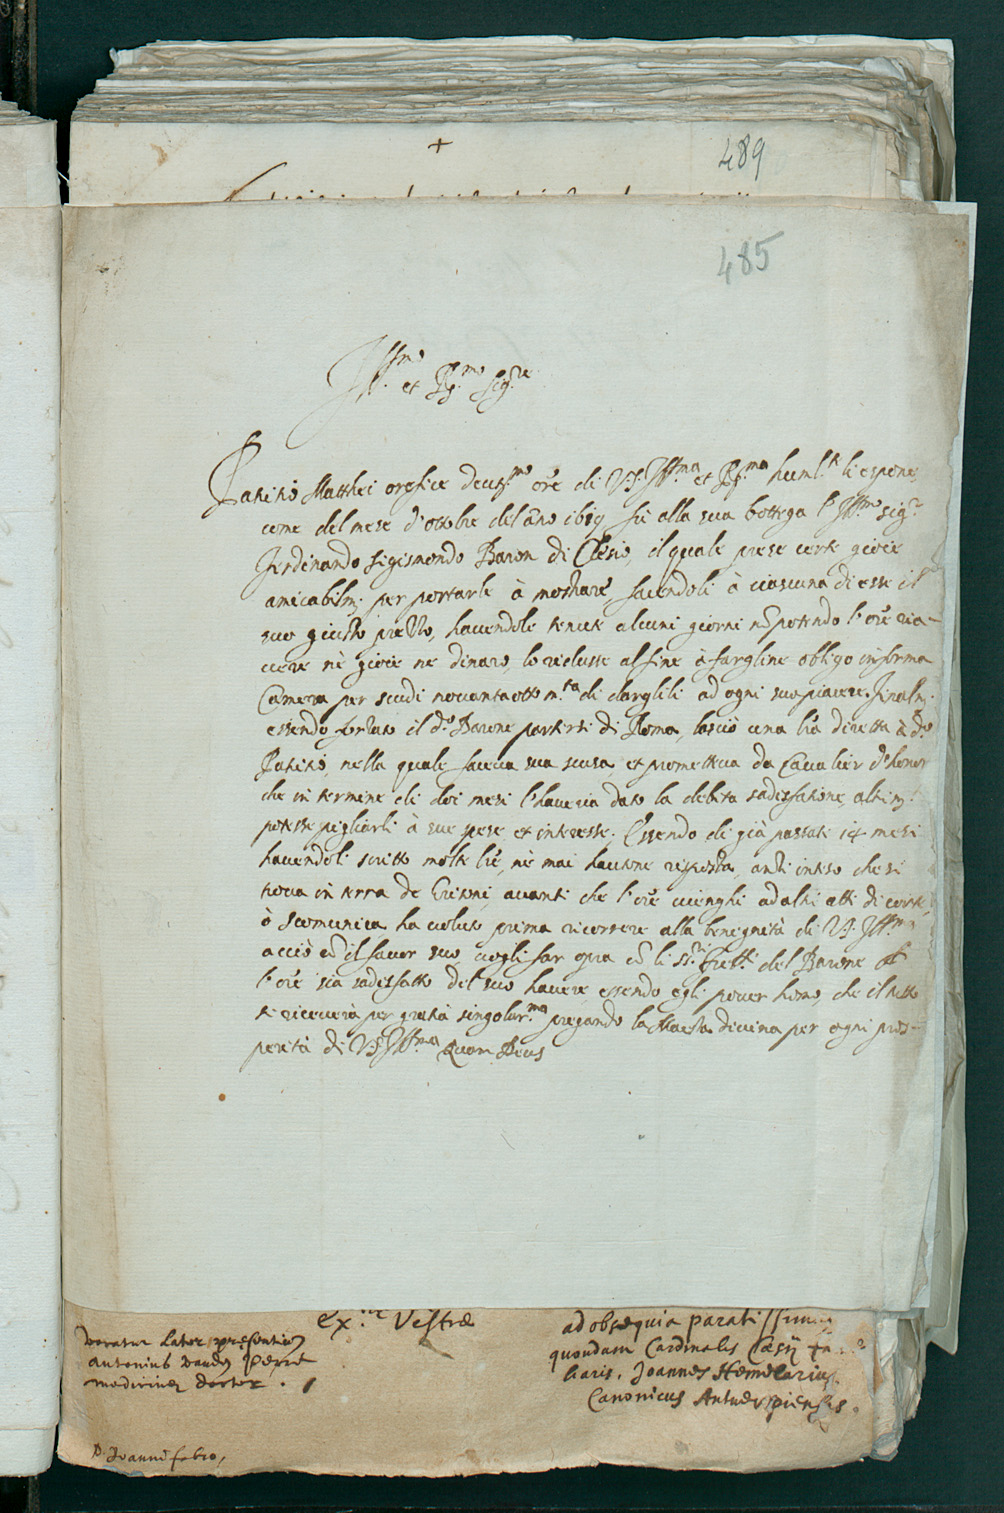 +
489
485
Ill.mo et R.mo Sig.re
Matthei orefice devot.mo ore di V.S. Ill.ma et R.ma huml.te li espone,
come del mese d'ottobre del año 1619 fù alla sua bottega l'Ill.mo sig.r
Ferdinando Sigismondo Baron di Clesio, il quale prese certe gioie
amicabilm. per portarle à mostrare, facendoli à ciascuna di esse il
suo giusto prezzo, havendole tenute alcuni giorni nõ potendo l'ore ria-
vere nè gioie ne dinaro, lo riclusse al fine à fargline obligo in forma
Camera per scudi novantaotto m.ta di darglili ad ogni suo piacere. Finalm.
essendo forzato il d.o Barone partirsi di Roma, lasciò una lra diretta à d.o
nella quale faceva sua scusa, et prometteva da Cavalier d'honor
che in termine di doi mesi l'haveria dato la debita sadisfatione, altrim.
potesse pigliarli à sue spese et interesse. Essendo di già passati 14 mesi
havendoli scritto molte lre, nè mai havutone risposta, anzi inteso che si
trova in terra de Grisoni, avanti che l'ore venghi ad altri atti di corte,
ò scomunica, ha voluto prima ricorrere alla benegnità di V.S. Ill.ma
acciò cõ il favor suo, vogli far opra cõ li ss.ri fratt. del Barone
l'ore sia sadisfatto del suo havere, essendo egli pover homo, che il tutto
si riceverà per gratia singolar.ma pregando la Maestà divina per ogni pros-
perità di V.S. Ill.ma Quam Deus
Ex.tiæ Vestræ
ad obsequia paratissimus
quondam Cardinalis Cæsij
liaris, Joannes Hemelarius
Canonicus Antverpiensis.
later præsentium
Antonius
medicinæ doctor.
D. Joanni fabro,